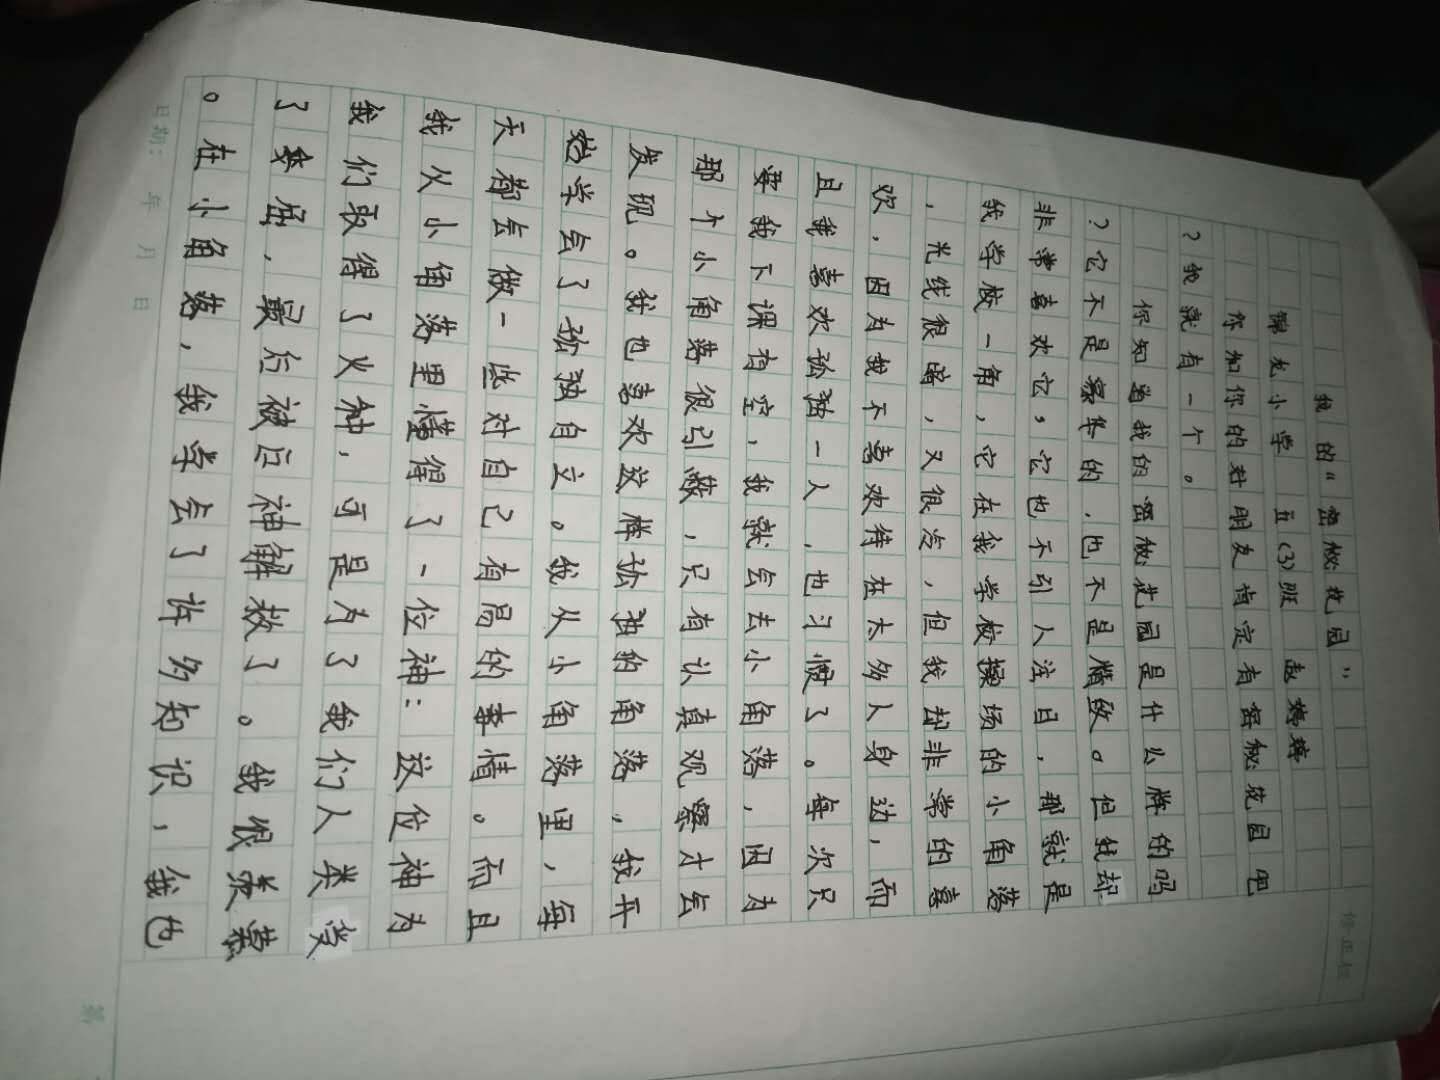 我的“密秘花园”
锦龙小学 五(3)班 赵
你和你的好朋友肯定有密秘花园吧
?我就有一个。
你知道我的密秘花园是什么牌的吗
?它不是豪华的,也不是精致。但我却
非常喜欢它,它也不引人注目,那就是
我学校一角,它在我学校操场的小角落
,光线很暗,又很冷,但我却非常的喜
欢,因为我不喜欢待在太多人身边,而
且我喜欢孤独一人,也习惯了。每次只
要我下课有空,我就会去小角落,因为
那个小角落很引蔽,只有认真观察才会
发现。我也喜欢这样孤独的角落,我开
始学会了孤独自立。我从小角落里,每
天都会做一些对自己有曷的事情。而且
我从小角落里懂得了一位神:这位神为
我们取得了火种,可是为了我们人类受
了事屈,最后被后神解救了。我很羡慕
。在小角落,我学会了许多知识,我也
修正栏
日期: 年 月 日
第